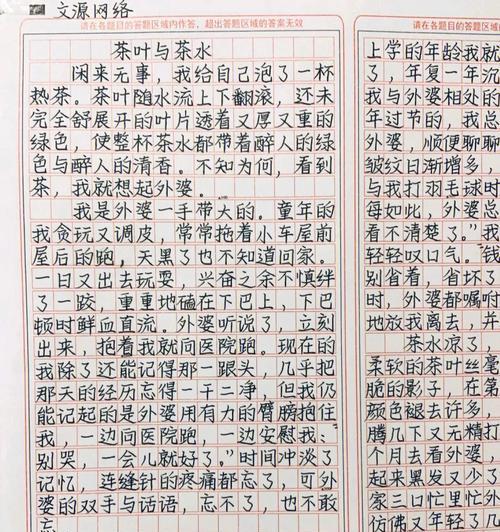 文源网络
请在各题目的答题区域内作答，超出答题区域的答案无效
茶叶与茶水
闲来无事，我给自己泡了一杯
热茶。茶叶随水流上下翻滚，还未
完全舒展开的叶片透着又厚又重的
绿色，使整杯茶水都带着醉人的绿
色与醉人的清香。不知为何，看到
茶，我就想起外婆。
我是外婆一手带大的。童年的
我贪玩又调皮，常常拖着小车屋前
屋后的跑，天黑了也不知道回家。
一日又出去玩耍，兴奋之余不慎绊
了一跤，重重地磕在下巴上，下巴
顿时鲜血直流。外婆听说了，立刻
出来，抱着我就向医院跑。现在的
我除了还能记得那一跟头，几乎把
那天的经历忘得一干二净，但我仍
能记起的是外婆用有力的臂膀抱住
我，一边向医院跑，一边安慰我：
别哭，一会儿就好了。”时间冲淡了
记忆，连缝针的疼痛都忘了，可外
婆的双手与话语，忘不了，也不敢
忘
请在各题目的答题区域
上学的年龄我就
了，年复一年沉
我与外婆相处的
年过节的，我总
外婆，顺便聊聊
皱纹日渐增多，
与我打羽毛球时
每如此，外婆总
看不清楚了。”我
轻轻叹口气。“钱
别省着，省坏了
时，外婆都嘱咐
地放我离去，并
茶水凉了，
柔软的茶叶丝毫
脆的影子，在第
颜色褪去许多，
腾几下又无精打
个月去看外婆，
起来黑发又少了
家三口忙里忙
仿佛又年轻了几